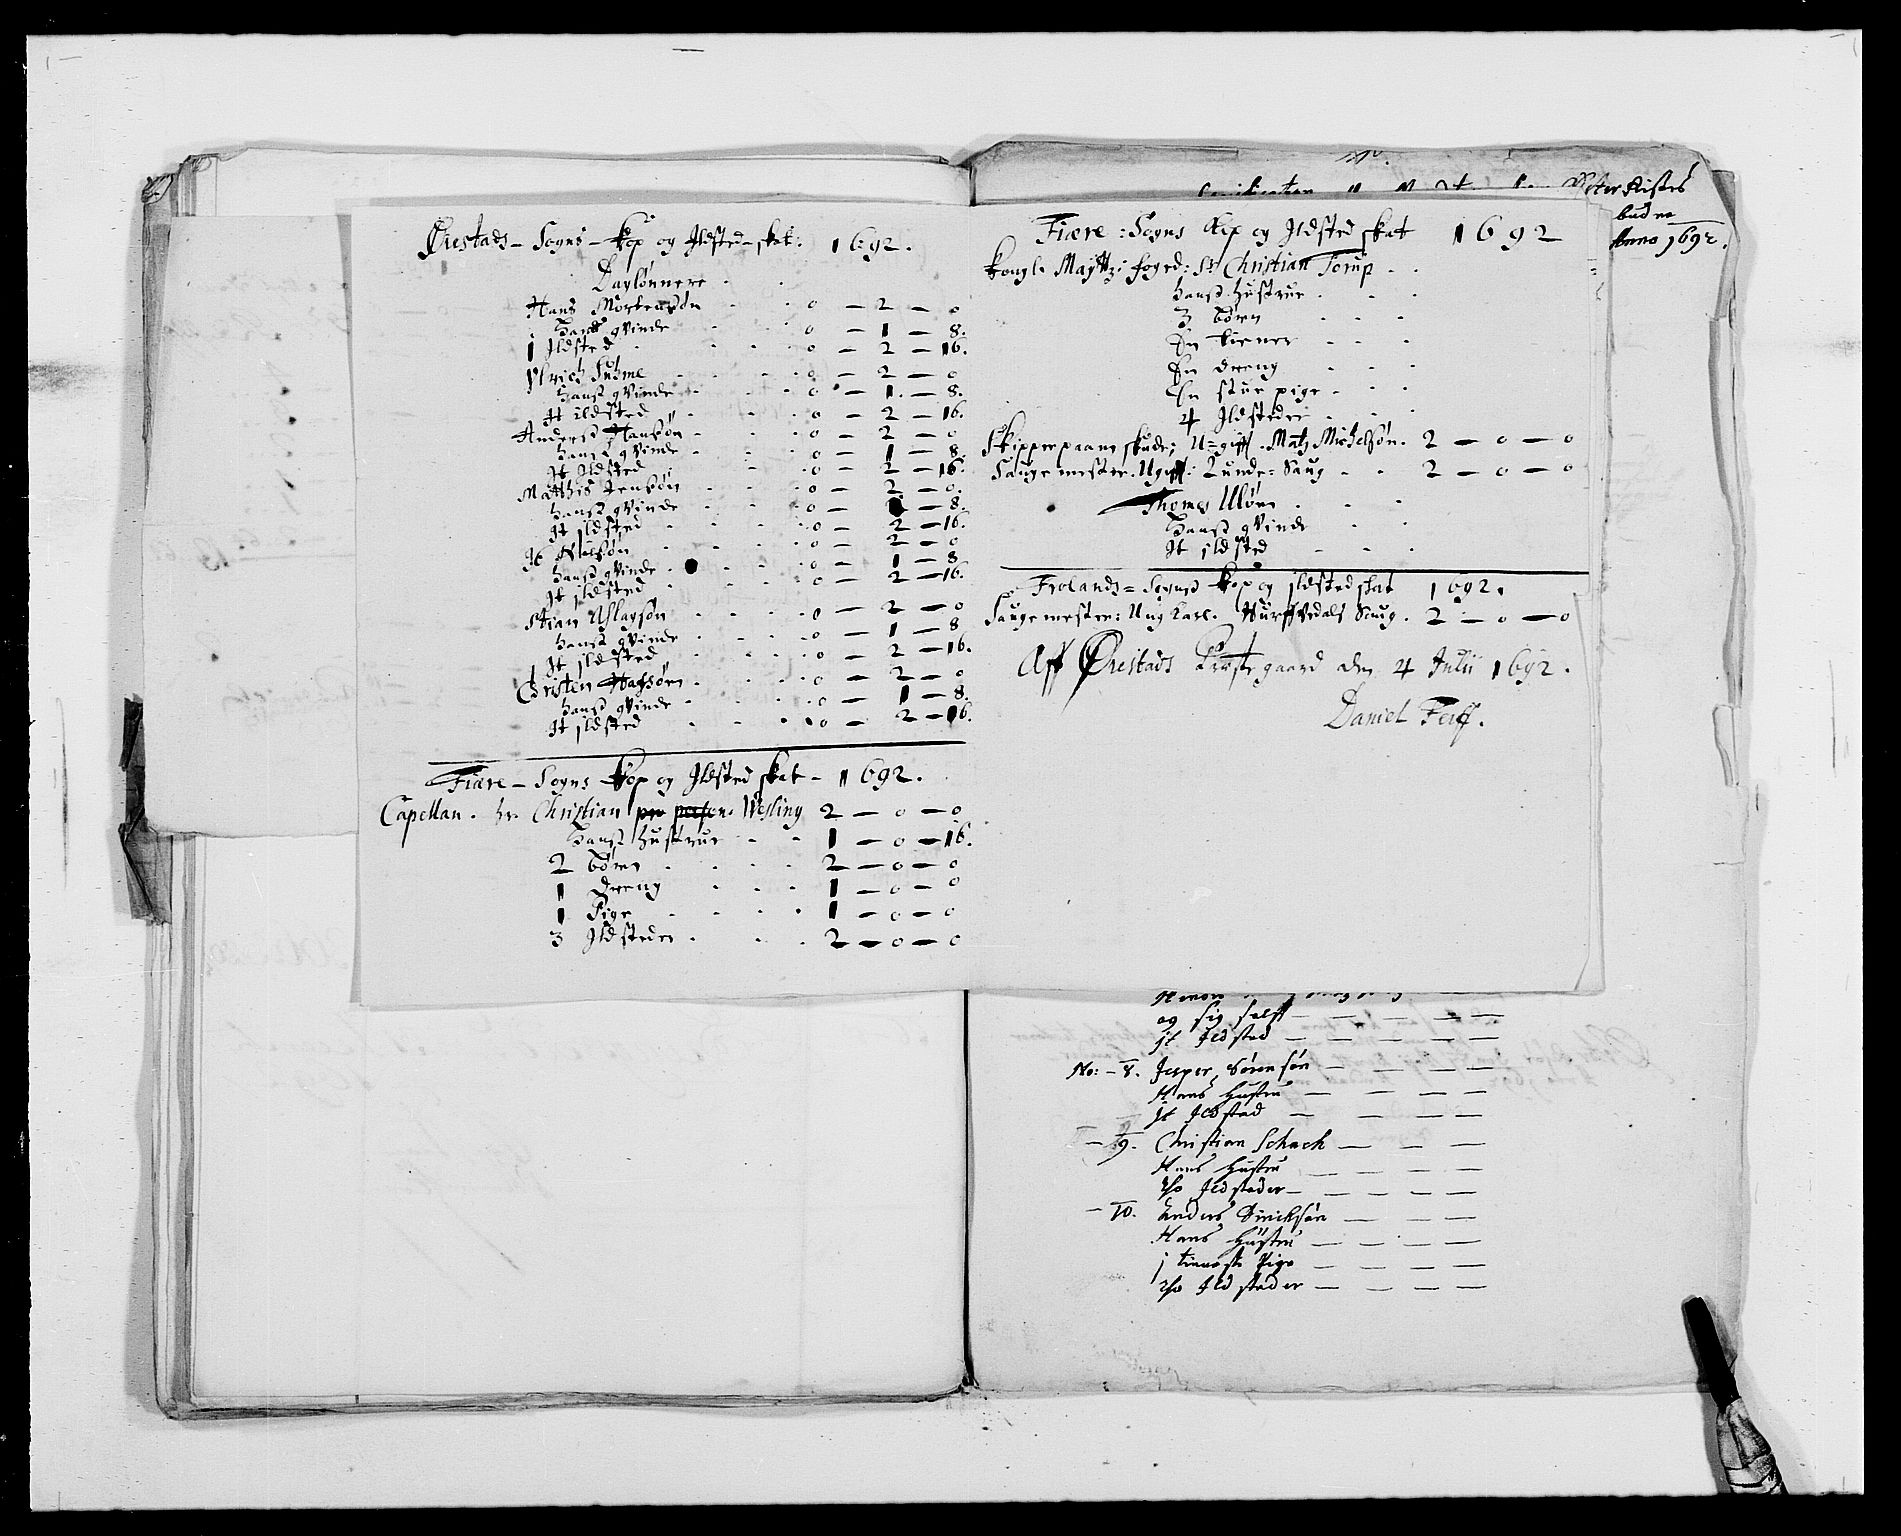 Ørestads - Sogns - Kop og Ildsted - skat: 1692.
Dagslønnere
Hans Mortensøn - - o - 2 - o
hans qvinde o - 1 - 8.
1 Ildsted - - o - 2 - 16.
Ulrich Suhme - - o - 2 - o
hans qvinde - - o - 1 - 8.
It ildsted - - o - 2 - 16.
Anders Hansøn - - o - 2 - o
hans qvinde - - o - 1 - 8
It Ildsted - - o - 2 - 16.
Matthis Jensøn - - o - 2 - o.
hans qvinde - - o - 1 - 8.
It ildsted - - o - 2 - 16.
Ib Nielsøn - - o - 2 - o
hans qvinde - - o - 1 - 8
It ildsted - - o - 2 - 16.
Stian Aslagsøn - - o - 2 - o
hans qvinde - - o - 1 - 8
It ildsted - - o - 2 - 16.
Christen - - o - 2 - o
hans qvinde - - o - 1 - 8.
It ildsted - - o - 2 - 16.
Fiære - Sogns Kop og Ildsted skat - 1692.
Capellan. hr. Christian Wesling 2 - o - o
hans hustrue - - 1 - o - 16.
2 børn - - 2 - o - o
1 dreng - - 1 - o - o
1 Pige - - 1 - o - o
3 Ildsteder - - 2 - o - o
Fiære: Sogns Kop og Ildsted skat 1692
Kongl. Maytz: foged: Sr Christian Torup - -
hans hustrue - - -
3 børn - - -
En tiener - - -
En dreng - - -
En stue pige - - -
4 Ildsteder - - -
Skipper paa en skude; U=gift. Mats Michelsøn. 2 - o - o
Saugemester. Ugift: Lunde = Saug - - 2 - o - o
Thomes - -
hans qvinde - -
It ildsted - -
Frolands = Sogns Kop og ildsted skat 1692.
Saugemester: Ung Karl. Saug. 2 - o - o
Aff Ørestads Præstegaard den 4 Julii 1692.
Daniel
Peter Kistes
Anno 1692.
og sig self - - - -
jt Ildsted - - - -
No: - 8. Jesper Sørensøn - - - -
Hans Hustru - - - -
jt Ildsted - - - -
- 9. Christian Schach - - -
Hans Hustru - - - -
Ildsteder - - - -
- 10. Anders Diricksøn - - - -
Hans Hustru - - - -
j tieneste Pige - - - -
Ildsteder - - - -